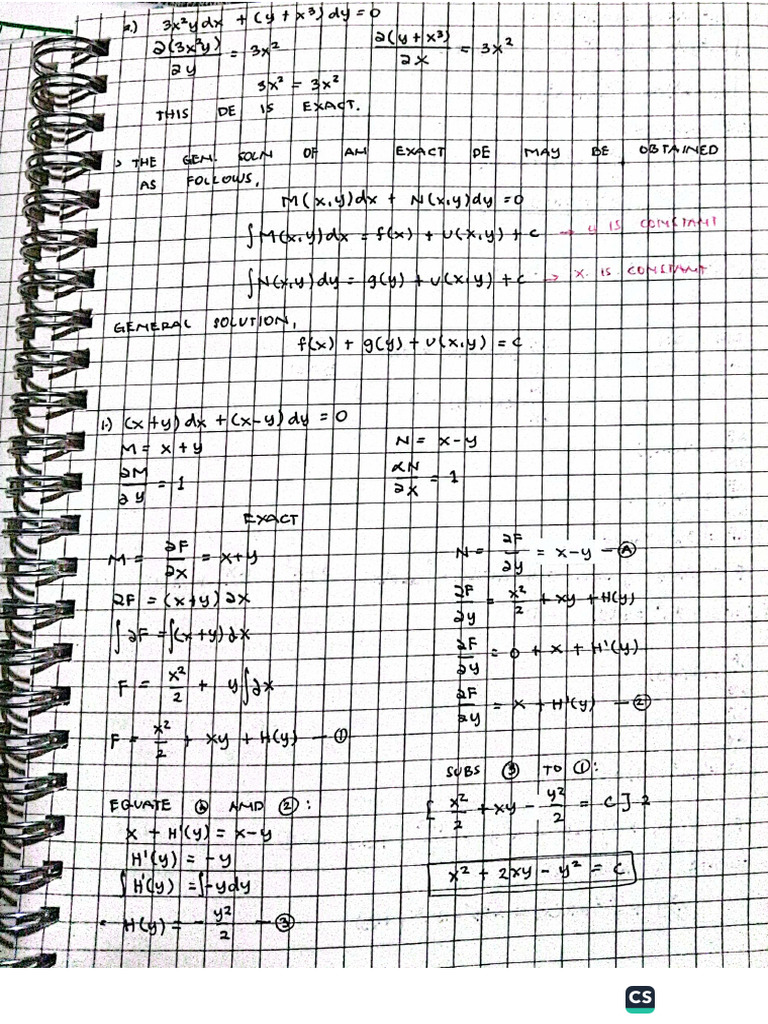 2.) 3x²y dx + (y + x³) dy = 0
∂(3x²y)/∂y = 3x² ∂(y + x³)/∂x = 3x²
3x² = 3x²
THIS DE IS EXACT.
> THE GEN. SOLN OF AN EXACT DE MAY BE OBTAINED
AS FOLLOWS,
M(x,y)dx + N(x,y)dy = 0
∫M(x,y)dx = f(x) + U(x,y) + C → y IS CONSTANT
∫N(x,y)dy = g(y) + U(x,y) + C → x IS CONSTANT
GENERAL SOLUTION,
f(x) + g(y) + U(x,y) = C
1.) (x+y)dx + (x-y)dy = 0
M = x + y
∂M/∂y = 1
N = x-y
∂N/∂x = 1
EXACT
M = ∂F/∂x = x+y
∂F = (x+y)∂x
∫∂F = ∫(x+y)∂x
F = x²/2 + y∫∂x
F = x²/2 + xy + H(y) — ①
N = ∂F/∂y = x-y — Ⓐ
∂F/∂y = x²/2 + xy + H(y)
∂F/∂y = 0 + x + H'(y)
∂F/∂y = x + H'(y) — ②
EQUATE Ⓐ AND ②:
x + H'(y) = x-y
H'(y) = -y
∫H'(y) = ∫-ydy
H(y) = - y²/2 — ③
SUBS ③ TO ①:
[x²/2 + xy - y²/2 = C] 2
x² + 2xy - y² = C
CS